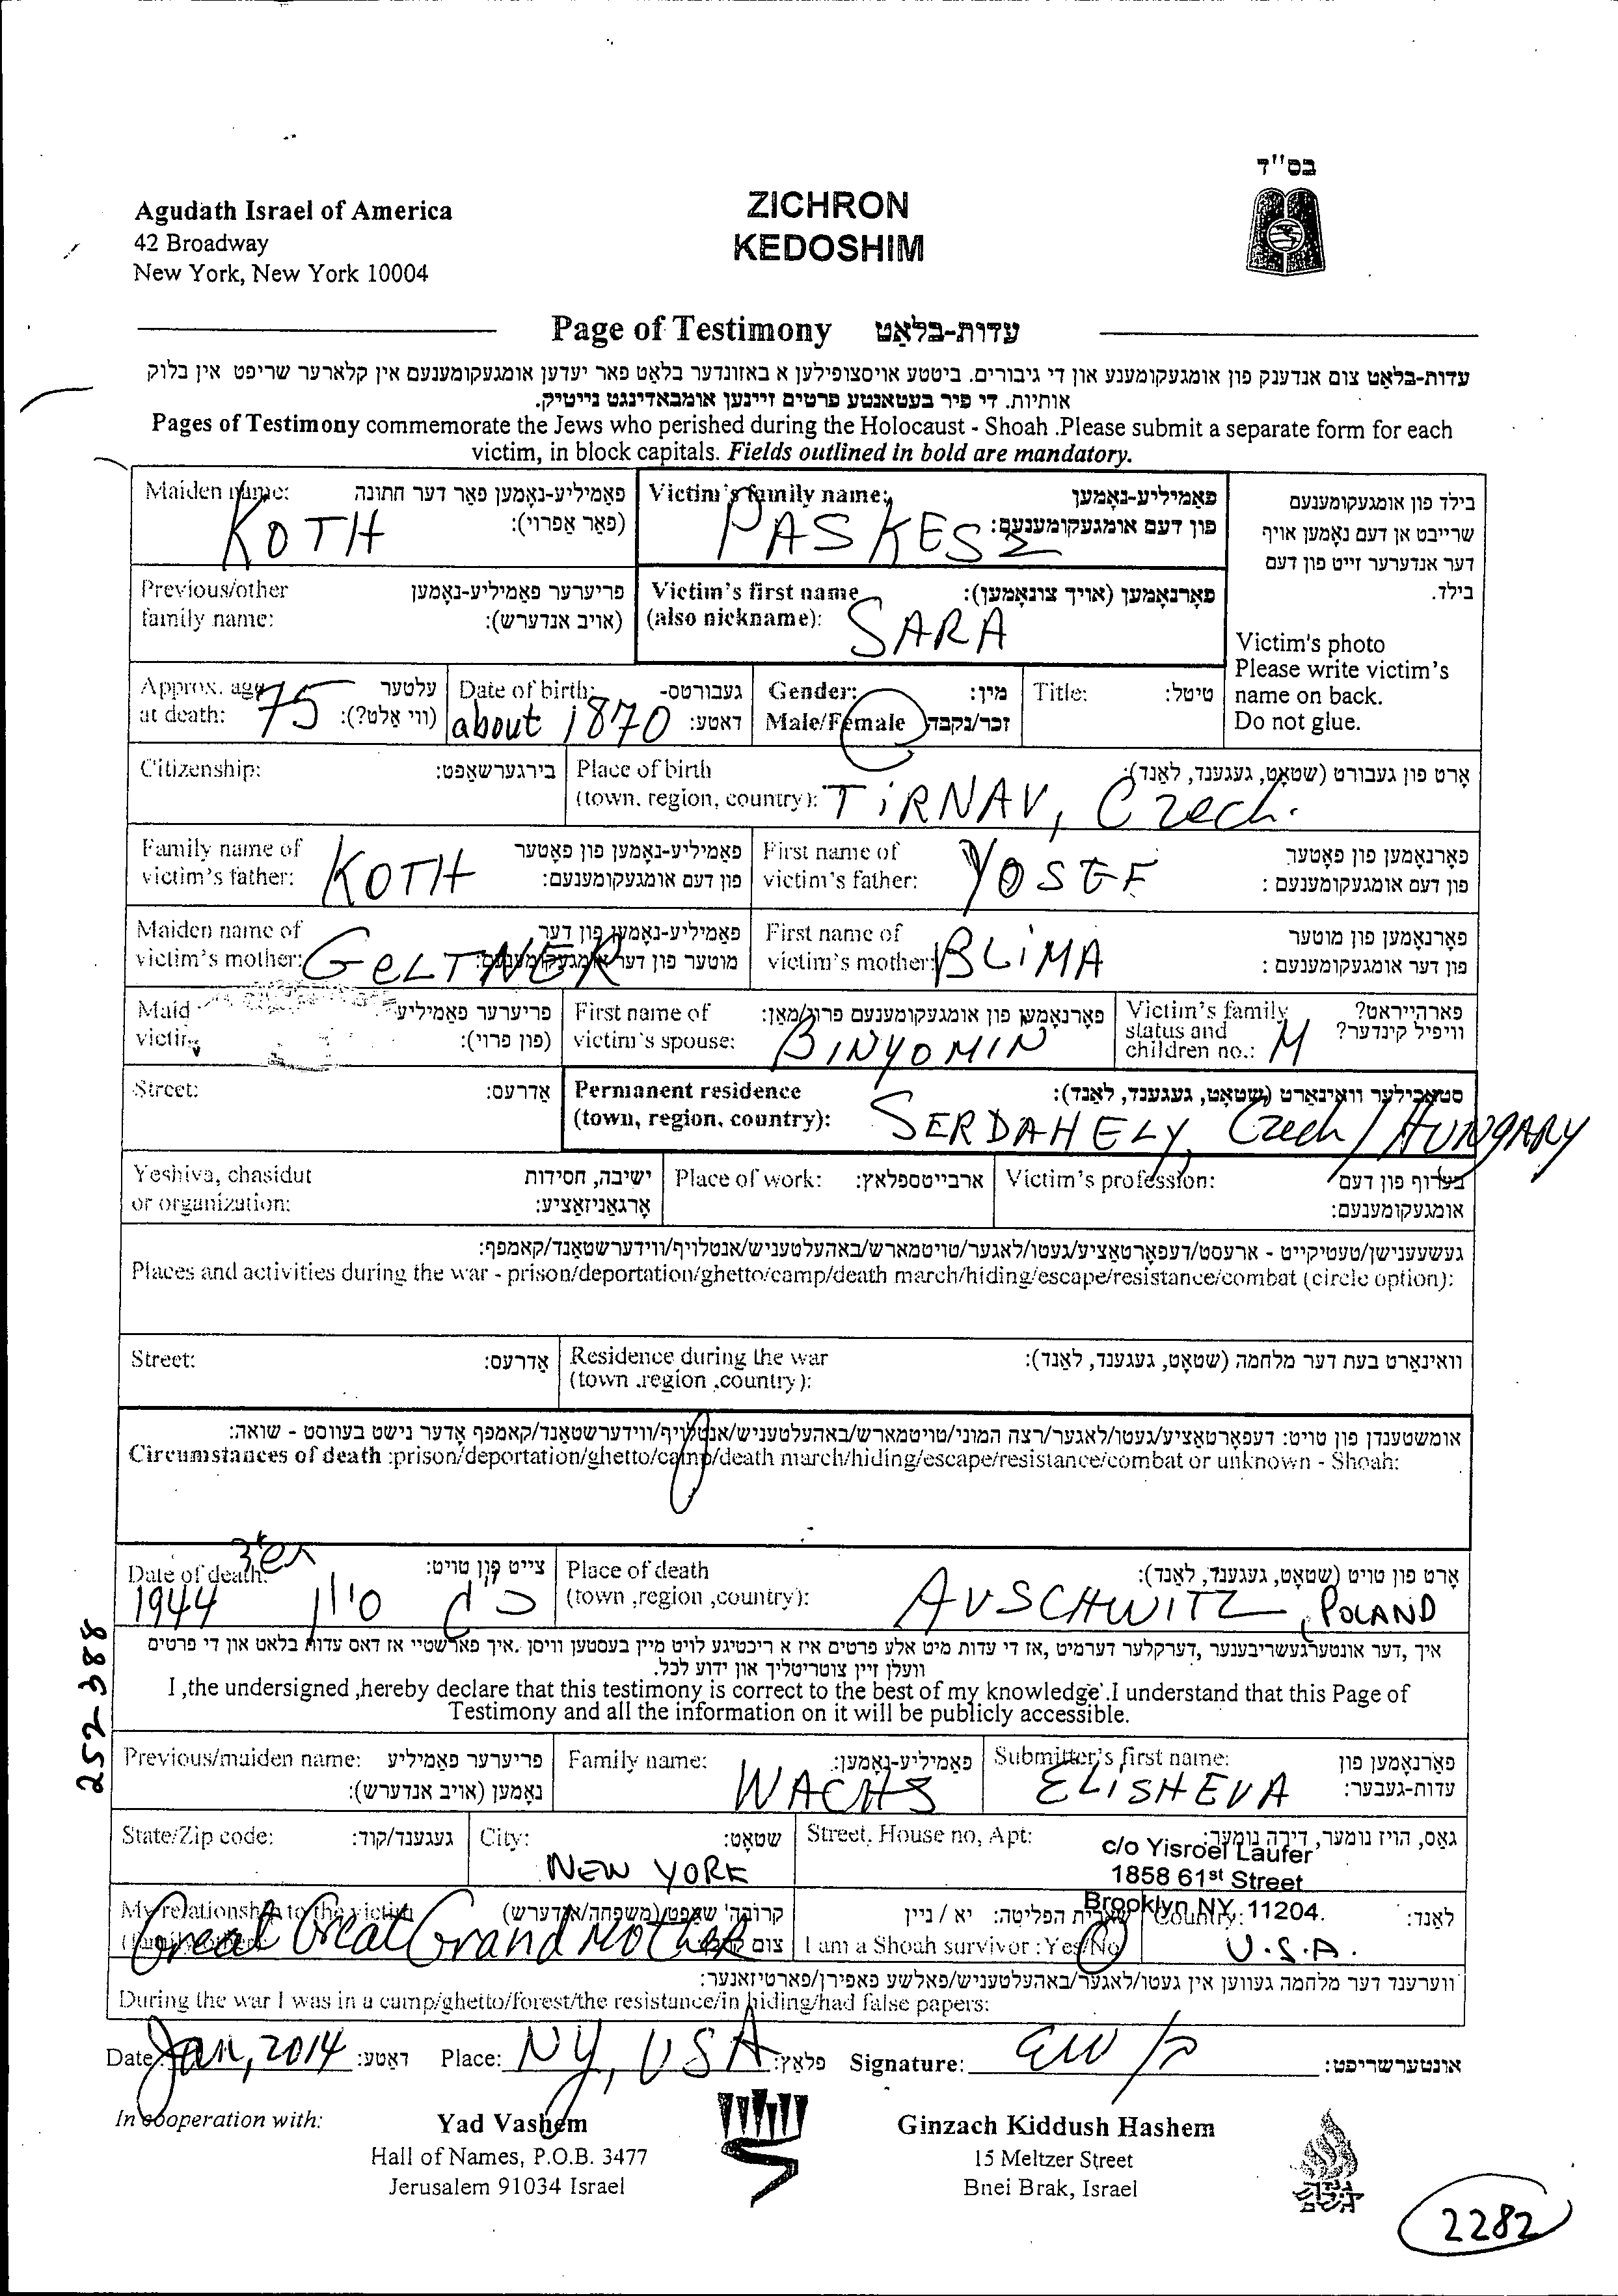 בס"ד
Agudath Israel of America
42 Broadway
New York, New York 10004
ZICHRON
KEDOSHIM
Page of Testimony עדות-בלאַט
עדות-בלאַט צום אנדענק פון אומגעקומענע און די גיבורים. ביטטע אויסצופילען א באזונדער בלאַט פאר יעדען אומגעקומענעם אין קלארער שריפט אין בלוק
אותיות. די פיר בעטאנטע פרטים זיינען אומבאדינגט נייטיק.
Pages of Testimony commemorate the Jews who perished during the Holocaust - Shoah .Please submit a separate form for each
victim, in block capitals. Fields outlined in bold are mandatory.
Maiden name: פאַמיליע-נאָמען פאַר דער חתונה
(פאַר אַפרוי):
KOTH
Victim's family name: פאַמיליע-נאָמען
פון דעם אומגעקומענעם:
PASKESZ
בילד פון אומגעקומענעם
שרייבט אן דעם נאָמען אויף
דער אנדערער זייט פון דעם
בילד.
Victim's photo
Please write victim's
name on back.
Do not glue.
Previous/other פריערער פאַמיליע-נאָמען
family name: (אויב אנדערש):
Victim's first name פאָרנאָמען (אויך צונאָמען):
(also nickname): SARA
Approx. age עלטער
at death: 75 (ווי אַלט?):
Date of birth: געבורטס-
about 1870 דאַטע:
Gender: מין:
Male/Female זכר/נקבה
Title: טיטל:
Citizenship: בירגערשאַפט:
Place of birth אָרט פון געבורט (שטאָט, געגענד, לאַנד):
(town, region, country): TiRNAV, Czech.
Family name of פאַמיליע-נאָמען פון פאָטער
victim's father: KOTH פון דעם אומגעקומענעם:
First name of פאָרנאָמען פון פאָטער
victim's father: YOSEF פון דעם אומגעקומענעם :
Maiden name of פאַמיליע-נאָמען פון דער
victim's mother: GeLTNER מוטער פון דער אומגעקומענעם:
First name of פאָרנאָמען פון מוטער
victim's mother: BLiMA פון דער אומגעקומענעם :
Maid פריערער פאַמיליע
victim (פון פרוי):
First name of פאָרנאָמען פון אומגעקומענעם פרוי/מאַן:
victim's spouse: BINYOMIN
Victim's family פארהייראט?
status and וויפיל קינדער?
children no.: M
Street: אַדרעס:
Permanent residence סטאַבילער וואוינאָרט (שטאָט, געגענד, לאַנד):
(town, region, country): SERDAHELY, Czech/HUNGARY
Yeshiva, chasidut ישיבה, חסידות
or organization: אָרגאַניזאַציע:
Place of work: ארבייטספּלאַץ:
Victim's profession: בערוף פון דעם
אומגעקומענעם:
געשעענישן/טעטיקייט - ארעסט/דעפּאָרטאַציע/געטו/לאַגער/טויטמארש/באַהעלטעניש/אנטלויף/ווידערשטאַנד/קאמפף:
Places and activities during the war - prison/deportation/ghetto/camp/death march/hiding/escape/resistance/combat (circle option):
Street: אַדרעס:
Residence during the war וואוינאָרט בעת דער מלחמה (שטאָט, געגענד, לאַנד):
(town ,region ,country):
אומשטענדן פון טויט: דעפּאָרטאַציע/געטו/לאַגער/רצח המוני/טויטמארש/באַהעלטעניש/אנטלויף/ווידערשטאַנד/קאמפף אָדער נישט בעוואוסט - שואה:
Circumstances of death :prison/deportation/ghetto/camp/death march/hiding/escape/resistance/combat or unknown - Shoah:
Date of death: צייט פון טויט:
1944 כ"ח סיון
Place of death אָרט פון טויט (שטאָט, געגענד, לאַנד):
(town ,region ,country): AUSCHWITZ, POLAND
252388
איך ,דער אונטערגעשריבענער ,דערקלער דערמיט ,אז די עדות מיט אלע פרטים איז א ריכטיגע לויט מיין בעסטען וויסן .איך פארשטיי אז דאס עדות בלאט און די פרטים
וועלן זיין צוטריטליך און ידוע לכל.
I ,the undersigned ,hereby declare that this testimony is correct to the best of my knowledge .I understand that this Page of
Testimony and all the information on it will be publicly accessible.
Previous/maiden name: פריערער פאַמיליע
נאָמען (אויב אנדערש):
Family name: פאַמיליע-נאָמען:
WACHS
Submitter's first name: פאָרנאָמען פון
ELISHEVA עדות-געבער:
State/Zip code: געגענד/קוד:
City: שטאָט:
NEW YORK
Street, House no, Apt: גאַס, הויז נומער, דירה נומער:
c/o Yisroel Laufer
1858 61st Street
Brooklyn NY, 11204.
My relationship to the victim קרובה'שאַפט (משפּחה/אַנדערש)
Great Great Grand Mother
שארית הפליטה: יא / ניין
I am a Shoah survivor : Yes/No
Country: לאַנד:
U.S.A.
ווערענד דער מלחמה געווען אין געטו/לאַגער/באַהעלטעניש/פאַלשע פּאַפּירן/פּאַרטיזאַנער:
During the war I was in a camp/ghetto/forest/the resistance/in hiding/had false papers:
Date: Jan, 2014 דאַטע: Place: NY, USA פּלאַץ: Signature: אונטערשריפט:
In cooperation with:
Yad Vashem
Hall of Names, P.O.B. 3477
Jerusalem 91034 Israel
Ginzach Kiddush Hashem
15 Meltzer Street
Bnei Brak, Israel
2282